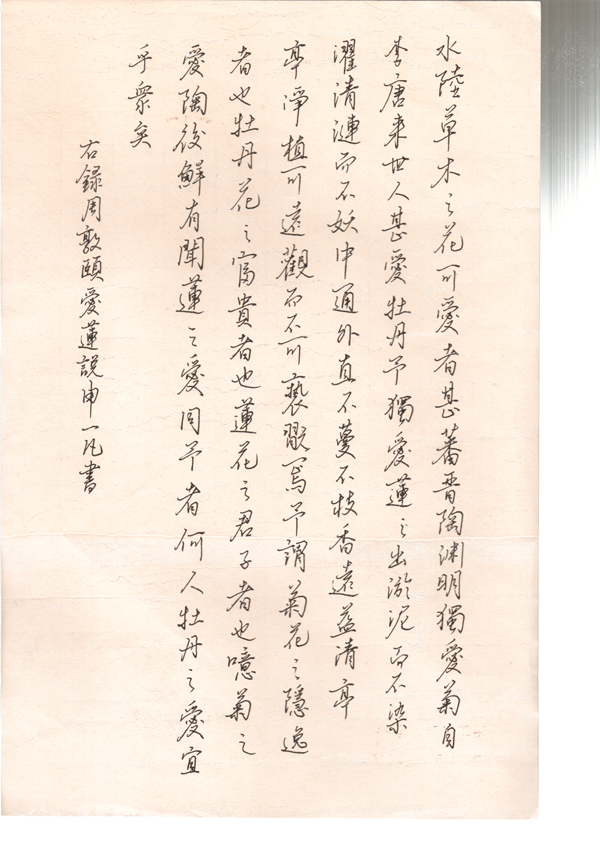 水陸草木之花可愛者甚蕃晋陶渊明獨愛菊自
李唐来世人甚愛牡丹予獨愛蓮之出淤泥而不染
濯清漣而不妖中通外直不蔓不枝香遠益清亭
亭淨植可遠觀而不可褻翫焉予謂菊花之隱逸
者也牡丹花之富貴者也蓮花之君子者也噫菊之
愛陶後鮮有聞蓮之愛同予者何人牡丹之愛宜
乎衆矣
右録周敦頤愛蓮說申一凡書